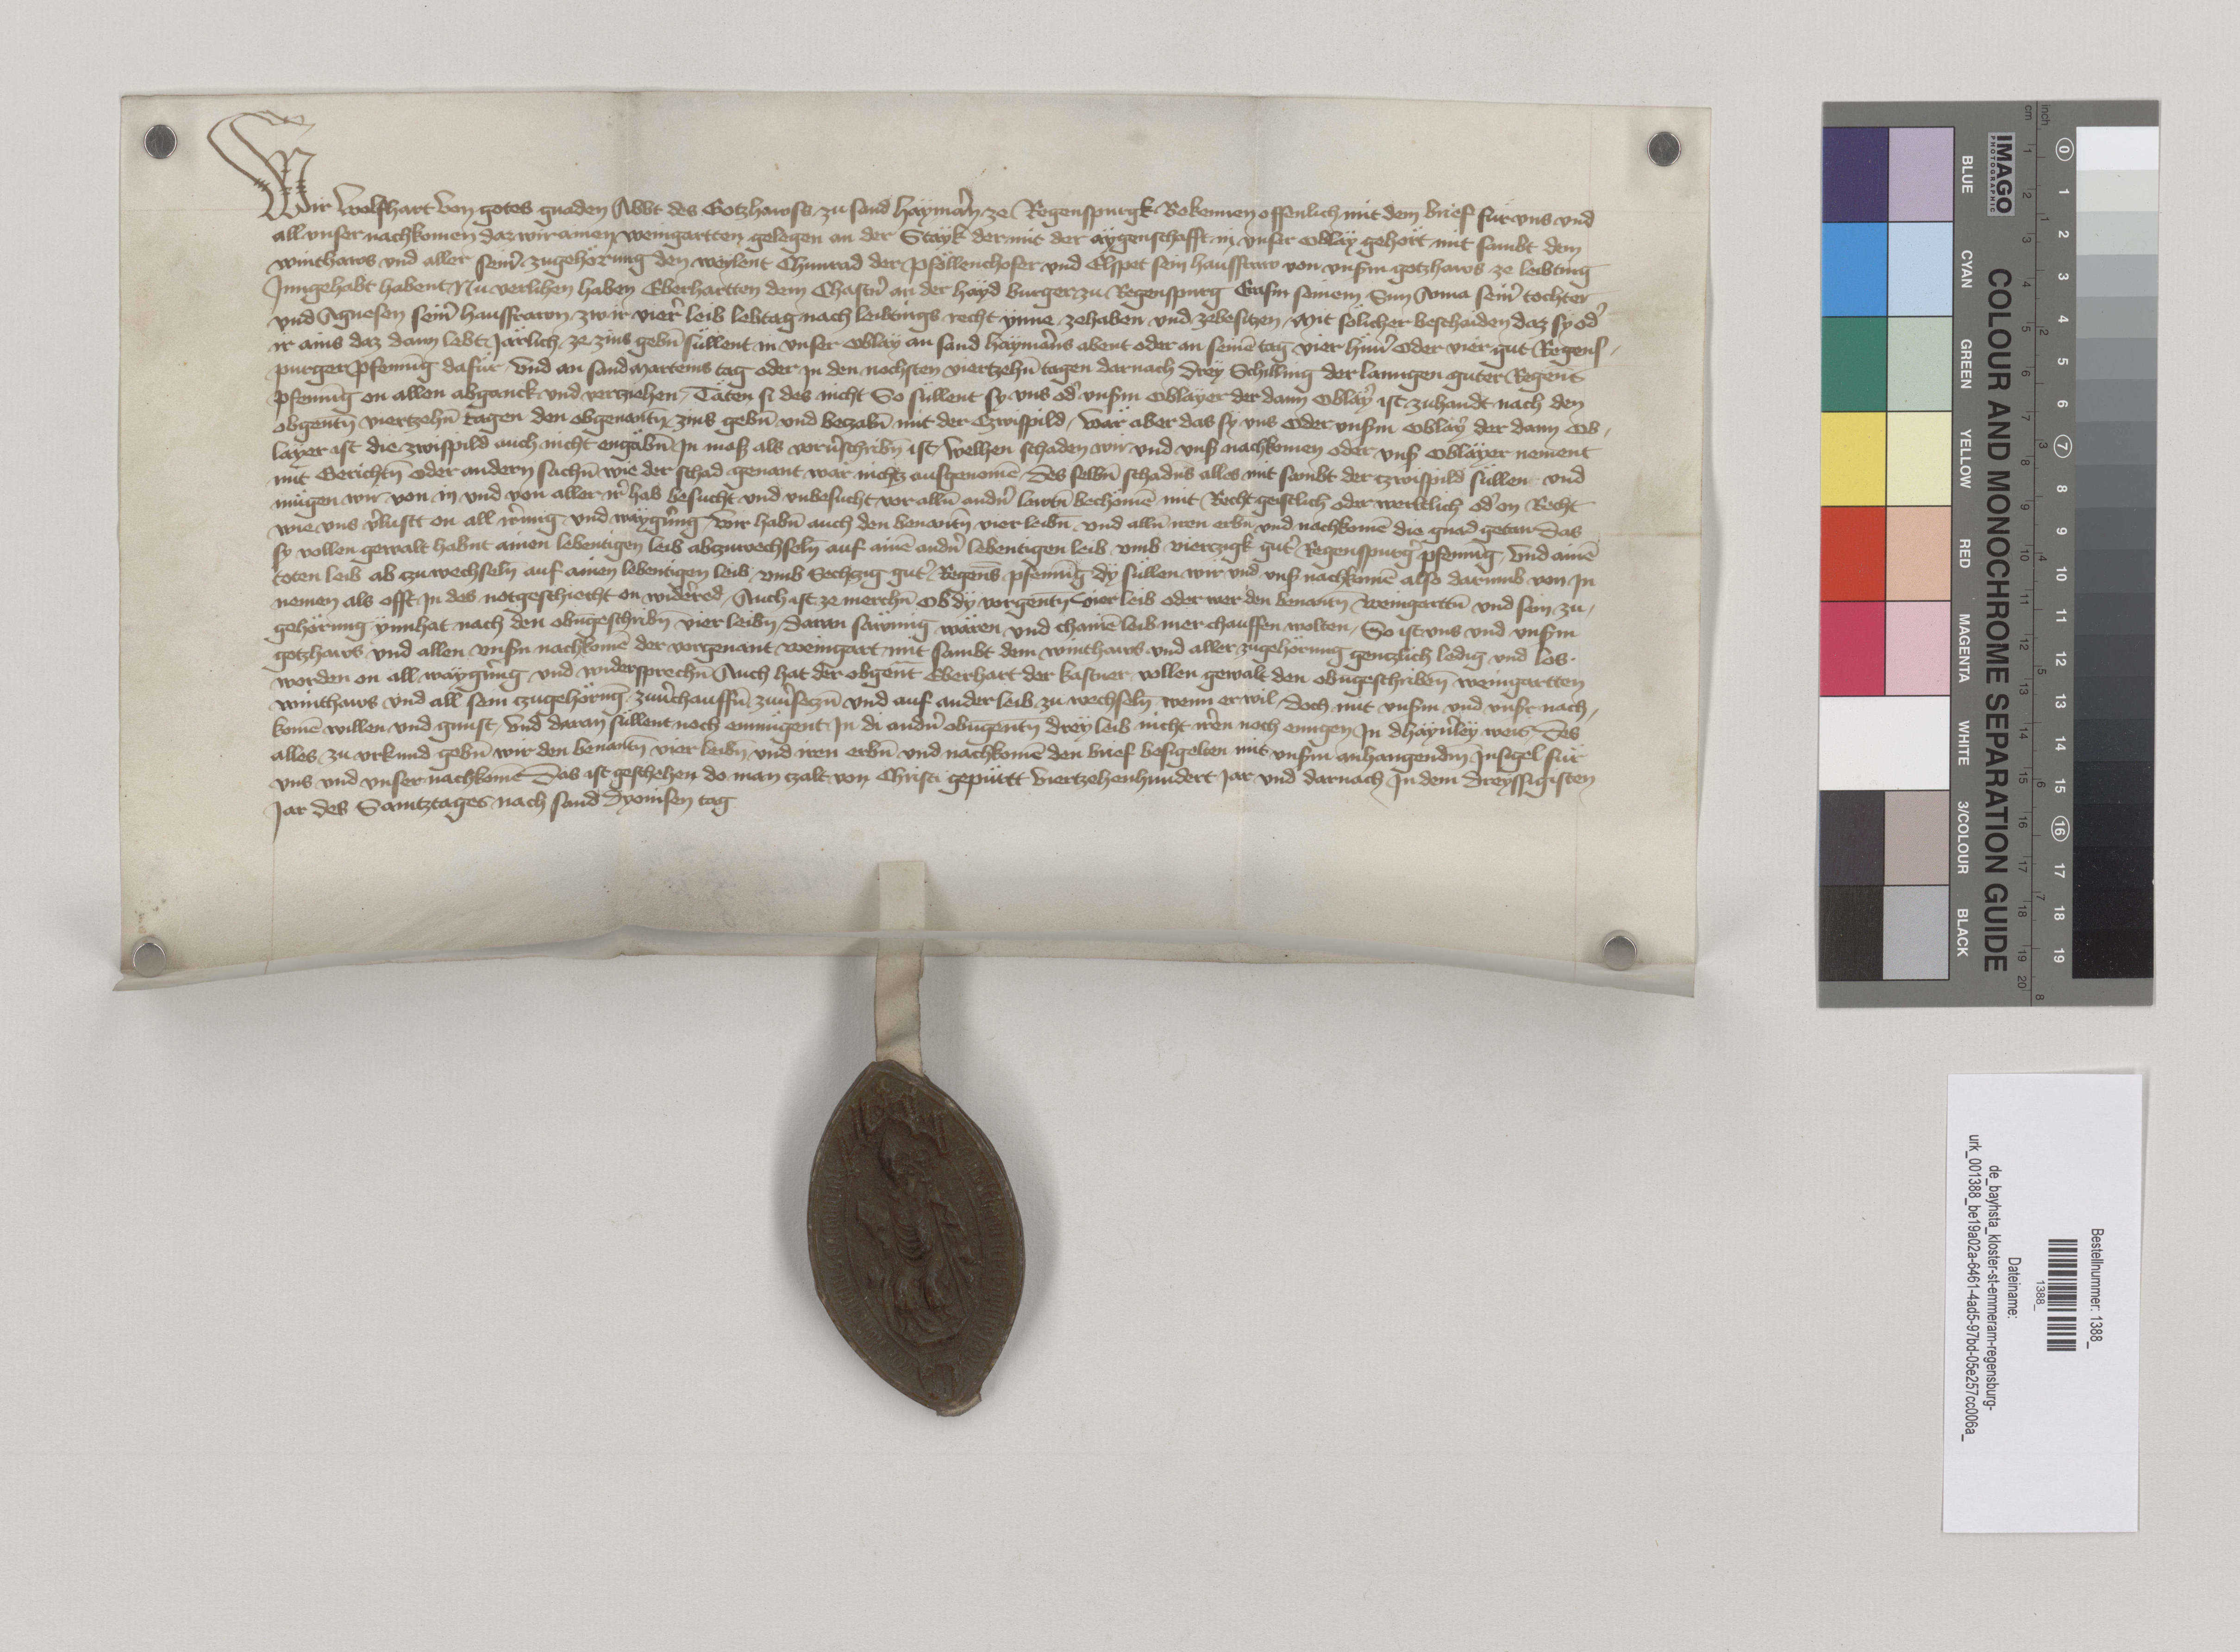 Wir Wolfhart von gotes gnaden Abbt des Gotzhawss zu sand Hayman̄ ze Regenspurgk Bekennen offenlich mit dem brief für vns vnd
all vnser nachkomen daz wir ainen weingartten gelegen an der Stayk der mit der aygenschafft in vnser Oblay gehört mit sambt dem
winthaws vnd aller seiner zugehörung den weylent Chunrad der Pföllenchofer vnd Elspet sein hausfraw von vnserm gotzhaws ze leibting
Inngehabt habent Nu verlihen haben Eberhartten dem Chastner an der Hayd burger zu Regenspurg Erasm seinem Sun Anna seiner tochter
vnd Agnesen seiner hausfrawn zw ir vierer leib lebtag nach leibtings recht ynne zehaben vnd zebesitzen Mit sölicher beschaiden daz sy oder
ir ains daz dann lebt Järlich ze zins gebn̄ süllent in vnser oblay an sand Haymans abent oder an seinē tag vier hüner oder vier gut Regens-
purger pfenning dafür Vnd an sand Marteins tag oder in den nechsten viertzehn̄ tagen darnach Drey Schilling der lanngen guter Regens
pfenning on allen abganck vnd verziehen Täten si des nicht So süllent sy vns oder vnserm Oblayer der dann Oblayer ist zuhandt nach den
obgentn̄ viertzehn̄ tagen den obgenantn̄ zins gebn̄ vnd beczaln̄ mit der Czwispild Wär aber das sy vns oder vnserm oblayer der dann Ob-
layer ist die zwispild auch nicht engäbn̄ In mass als vorverschribn̄ ist Welhen schaden wir vnd vnser nachkomen oder vnser Oblayer nement
mit Gerichtn̄ oder andern sachn̄ wie der schad genant wär nichtz ausgenomē Des selbn̄ schadns alles mit sambt der czwispild süllen vnd
mügen wir von in vnd von aller ir hab besucht vnd vnbesucht vor alln̄ andern lawtn̄ bechomē mit Recht geistlich oder werltlich oder on Recht
wie vns verlustt on all irrung vnd waygrung Wir habn̄ auch den benantn̄ vier leibn̄ vnd alln̄ iren erbn̄ vnd nachkomē die gnad getan Das
sy vollen gewalt habnt ainen lebentigen leib abczuwechseln̄ auf ainē andern lebentigen leib vmb viertzigk guter Regenspurger pfenning Vnd ainē
toten leib ab czu wechseln̄ auf ainen lebentigen leib vmb Sechtzig guter Regens pfenning Dy süllen wir vnd vnser nachkomē also darumb von In
nemen als offt In des notgeschiecht on widered Auch ist ze merchn̄ Ob dy vorgentn̄ vier leib oder wer den benantn̄ Weingarttn̄ vnd sein zu-
gehörung ynnhat nach den obngeschribn̄ vier leibn̄ daran sawmig wären vnd chainē leib mer chauffen wolten So ist vns vnd vnserm
gotzhaws vnd allen vnsern nachkomē der vorgenant weingart mit sambt dem winthaws vnd aller zugehörung gentzlich ledig vnd los
worden on all waygrung vnd widersprechn̄ Auch hat der obgent̄ Eberhart der kastner vollen gewalt den obngeschriben̄ weingartten
winthaws vnd all sein czugehörung zuuerchauffn̄ zuuersetzn̄ vnd auf ander leib zu wechseln̄ wenn er wil Doch mit vnserm vnd vnser nach-
komē willen vnd gunst Vnd daran süllent noch enmügent In di andern obngentn̄ drey leib nicht irren noch enngen In dhaynerley weis Des
alles zu vrkund gebn̄ wir den benantn̄ vier leibn̄ vnd iren erbn̄ vnd nachkomē den brief besigelten mit vnserm anhangendm Insigel für
vns vnd vnser nachkomē Das ist geschehen do man czalt von Christi gepürtt Viertzehenhundert Jar vnd darnach In dem Dreyssigisten
Jar des Samtztages nach sand Dyonisen tag
IMAGO
PHOTOGRAPHIC
COLOUR AND MONOCHROME SEPARATION GUIDE
BLUE
CYAN
GREEN
YELLOW
RED
MAGENTA
WHITE
3/COLOUR
BLACK
cm 1 2 3 4 5 6 7 8 9 10 11 12 13 14 15 16 17 18 19 20
inch 1 2 3 4 5 6 7 8
0 1 2 3 4 5 6 7 8 9 10 11 12 13 14 15 16 17 18 19
Bestellnummer: 1388_
1388_
Dateiname:
de_bayhsta_kloster-st-emmeram-regensburg-
urk_001388_be19a02a-6461-4ad5-97bd-05e257cc006a_